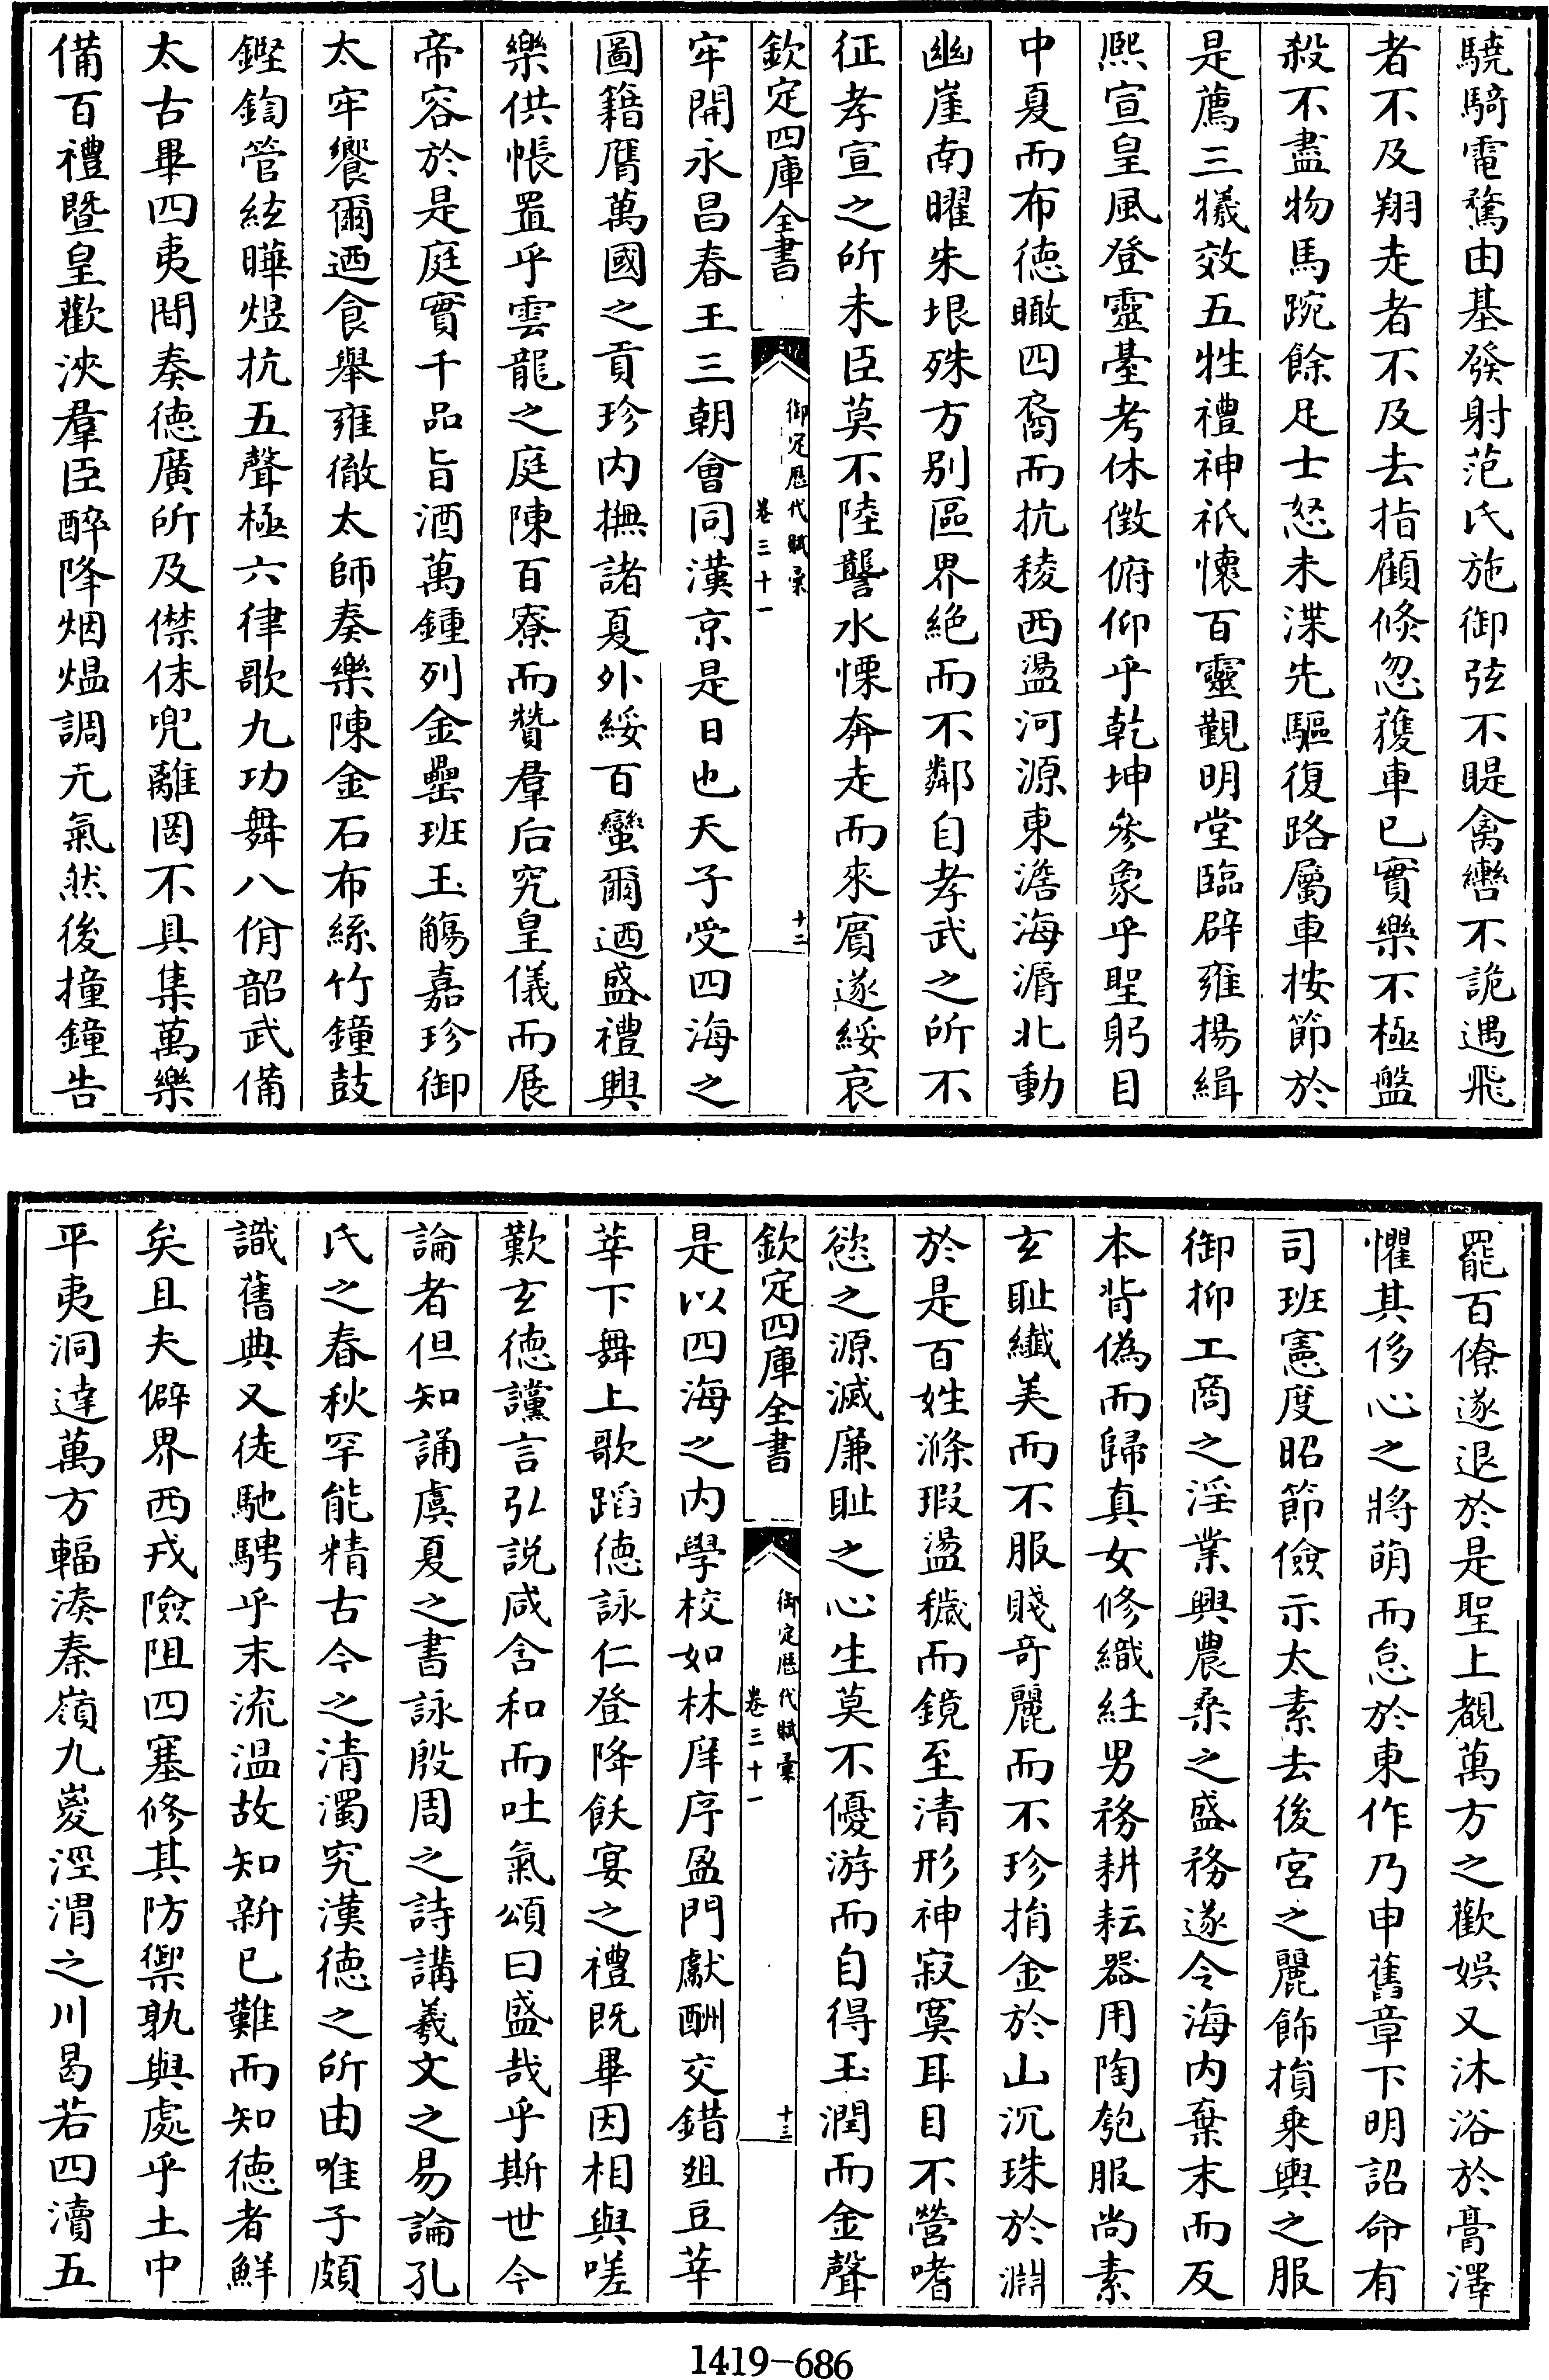 驍騎電騖由基發射范氏施御弦不睼禽轡不詭遇飛
者不及翔走者不及去指顧倐忽獲車已實樂不極盤
殺不盡物馬踠餘足士怒未渫先驅復路屬車按節於
是薦三犧效五牲禮神祇懷百靈覲明堂臨辟雍揚緝
熙宣皇風登靈臺考休徴俯仰乎乾坤參象乎聖躬目
中夏而布徳瞰四裔而抗稜西盪河源東澹海漘北動
幽崖南曜朱垠殊方别區界絶而不鄰自孝武之所不
征孝宣之所未臣莫不陸讋水慄奔走而來賓遂綏哀
欽定四庫全書
御定歴代賦彙
卷三十一
十二
牢開永昌春王三朝會同漢京是日也天子受四海之
圖籍膺萬國之貢珍内撫諸夏外綏百蠻爾迺盛禮興
樂供帳置乎雲龍之庭陳百寮而贊羣后究皇儀而展
帝容於是庭實千品旨酒萬鍾列金罍班玉觴嘉珍御
太牢饗爾迺食舉雍徹太師奏樂陳金石布絲竹鐘鼓
鏗鍧管絃曄煜抗五聲極六律歌九功舞八佾韶武備
太古畢四夷間奏徳廣所及僸佅兜離罔不具集萬樂
備百禮暨皇歡浹羣臣醉降烟熅調元氣然後撞鐘告
罷百僚遂退於是聖上覩萬方之歡娱又沐浴於膏澤
懼其侈心之將萌而怠於東作乃申舊章下明詔命有
司班憲度昭節儉示太素去後宮之麗飾損乘輿之服
御抑工商之淫業興農桑之盛務遂令海内棄末而反
本背偽而歸真女修織紝男務耕耘器用陶匏服尚素
玄耻纖美而不服賤竒麗而不珍捐金於山沉珠於淵
於是百姓滌瑕盪穢而鏡至清形神寂寞耳目不營嗜
慾之源滅廉耻之心生莫不優游而自得玉潤而金聲
欽定四庫全書
御定歴代賦彙
卷三十一
十三
是以四海之内學校如林庠序盈門獻酬交錯俎豆莘
莘下舞上歌蹈徳詠仁登降飫宴之禮既畢因相與嗟
歎玄徳讜言弘説咸含和而吐氣頌曰盛哉乎斯世今
論者但知誦虞夏之書詠殷周之詩講羲文之易論孔
氏之春秋罕能精古今之清濁究漢徳之所由唯子頗
識舊典又徒馳騁乎末流温故知新已難而知徳者鮮
矣且夫僻界西戎險阻四塞修其防禦孰與處乎土中
平夷洞達萬方輻湊秦嶺九嵏涇渭之川曷若四瀆五
1419-686